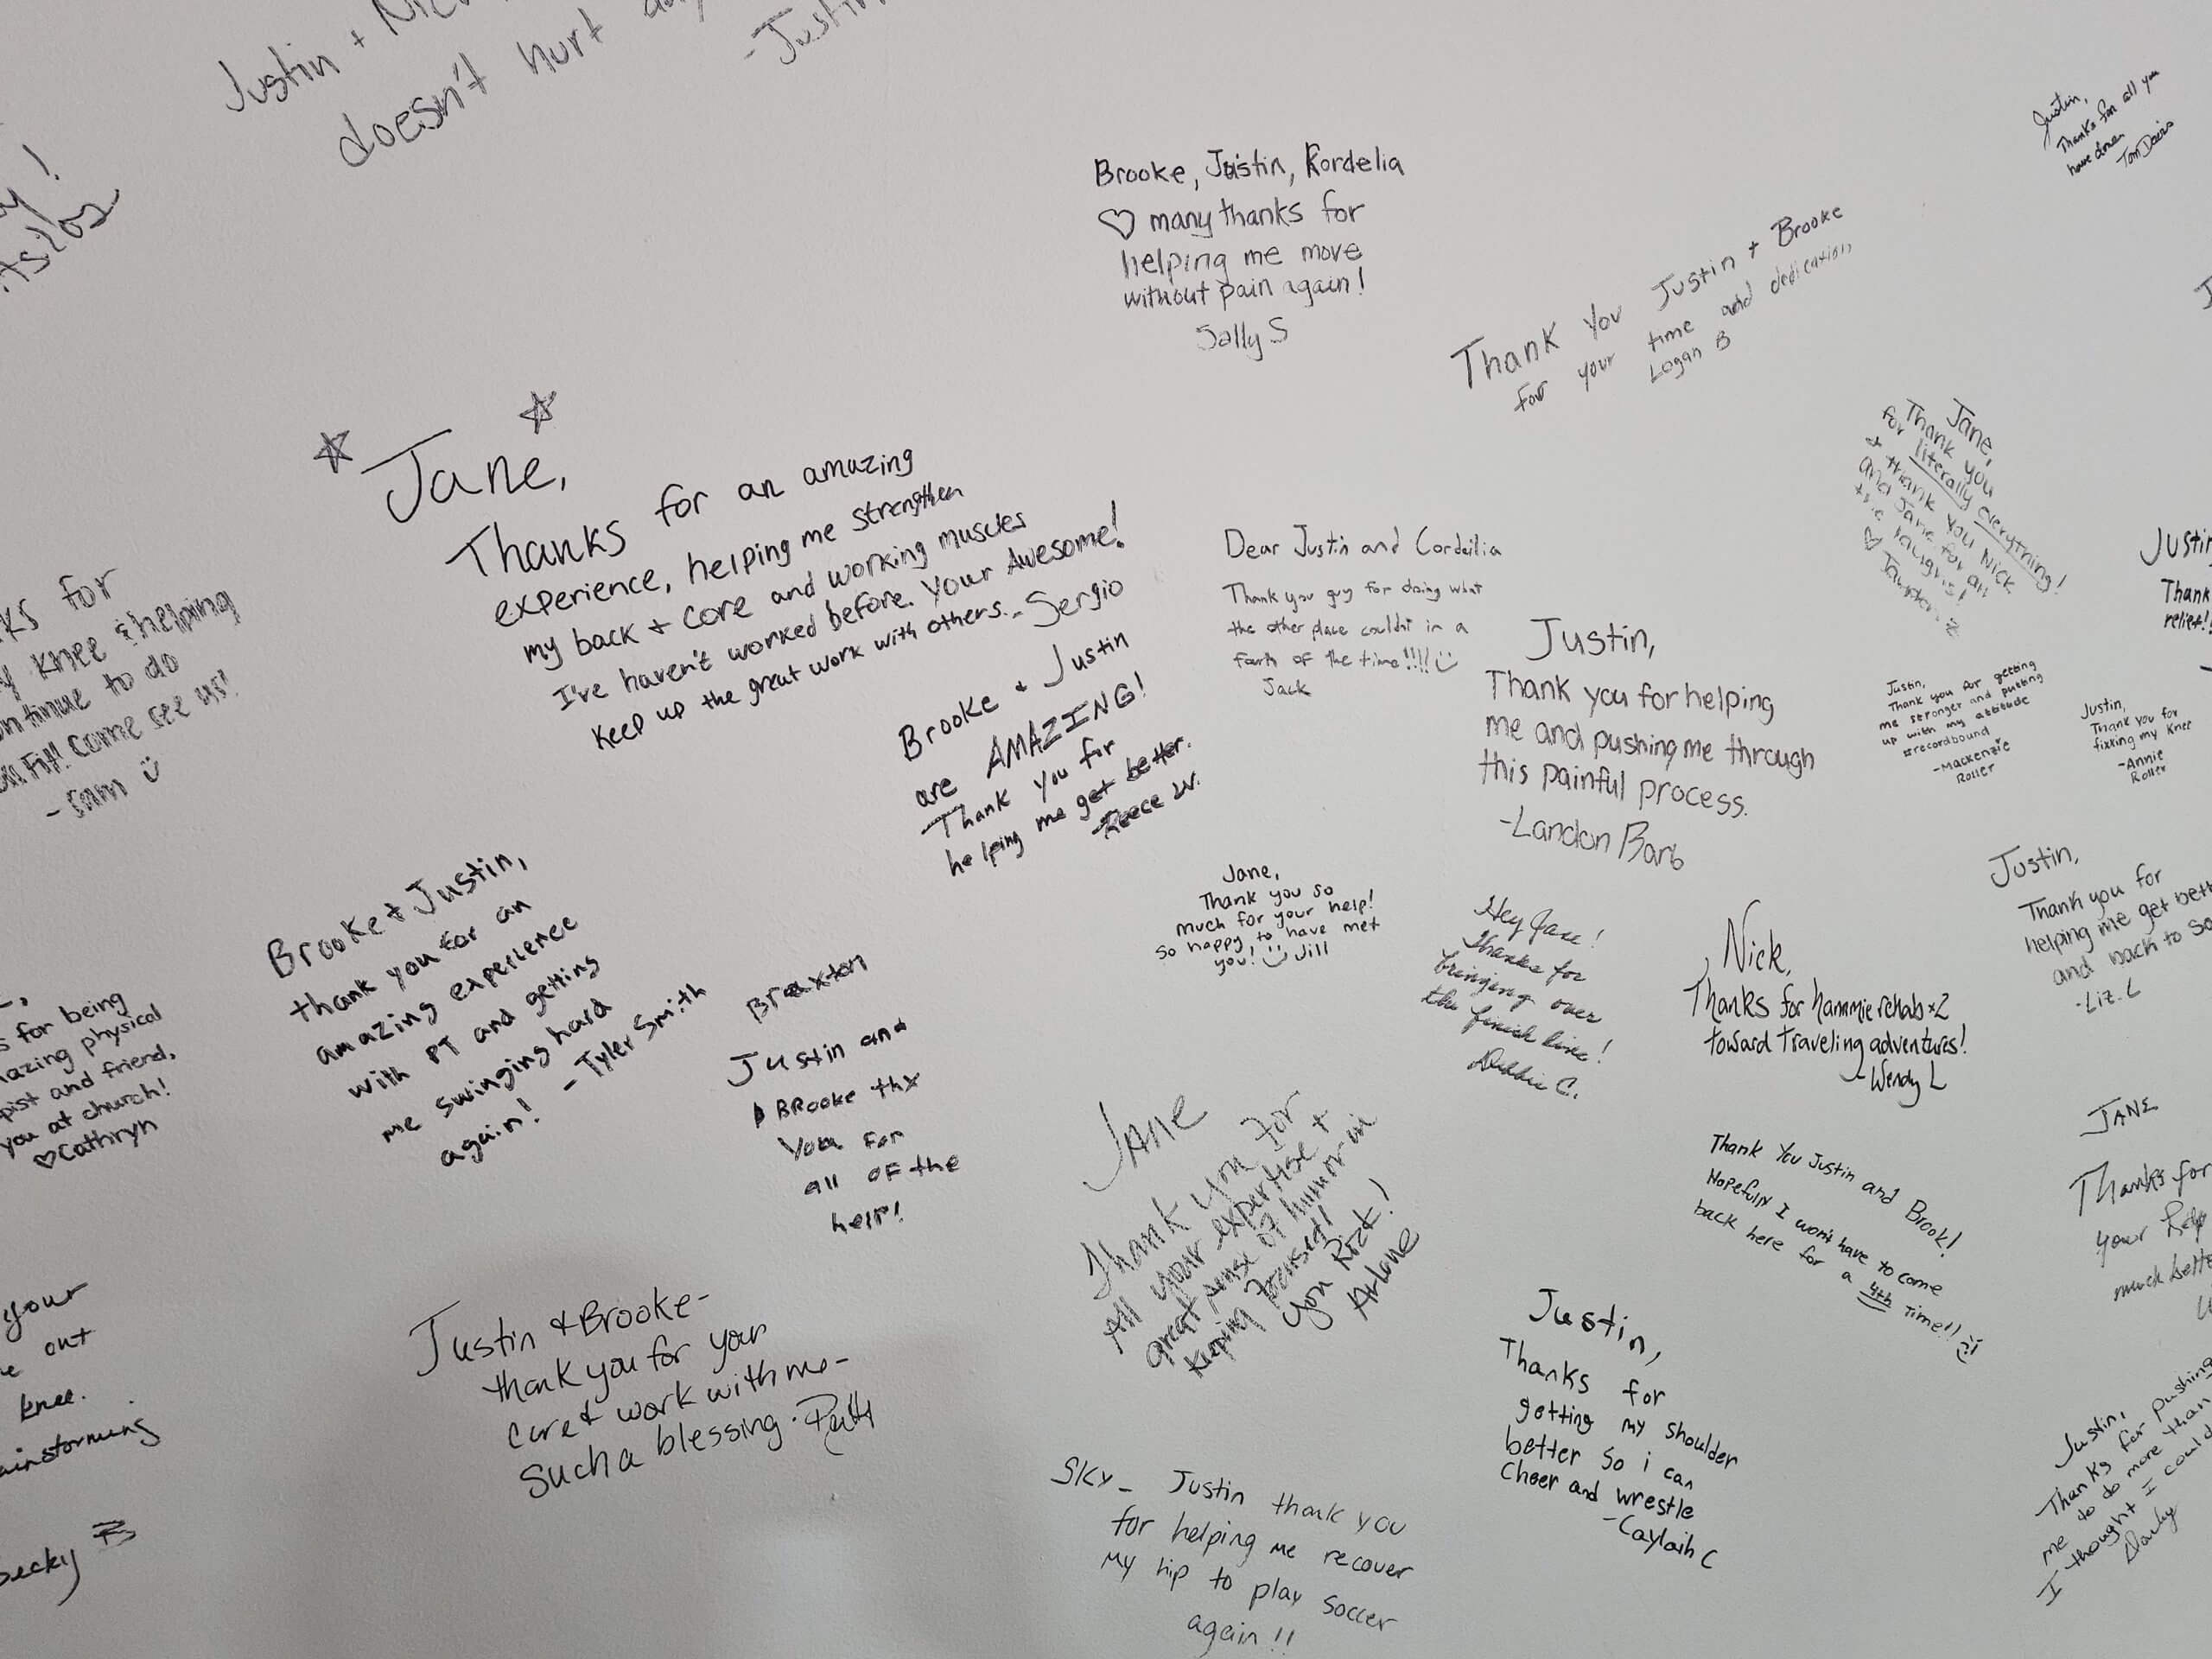 Justin +
doesn't hurt
-Justin
Brooke, Justin, Kordelia
♡ many thanks for
helping me move
without pain again!
Sally S
Justin,
Thanks for all you
have done
Tom
Thank You Justin + Brooke
for your time and dedication
Logan B
☆ Jane, ☆
Thanks for an amazing
experience, helping me strengthen
my back + core and working muscles
I've haven't worked before. Your Awesome!
Keep up the great work with others. - Sergio
Jane,
Thank you
for literally everything!
+ thank you Nick
and Jane for all
the laughs!
♡
Dear Justin and Cordeilia
Thank you guy for doing what
the other place couldnt in a
fourth of the time!!!!
Jack
Justin
Thank
relief!!
for
knee & helping
to do
Come see us!
- Sam
Brooke + Justin
are AMAZING!
Thank you for
helping me get better.
-Reece W.
Justin,
Thank you for helping
me and pushing me through
this painful process.
-Landon Barb
Justin,
Thank you for getting
me stronger and putting
up with my attitude
#recordbound
-Mackenzie
Roller
Justin,
Thank you for
fixing my knee
-Annie
Roller
Brooke + Justin,
thank you for an
amazing experience
with PT and getting
me swinging hard
again! - Tyler Smith
Jane,
Thank you so
much for your help!
So happy to have met
you! Jill
Hey Jane!
Thanks for
bringing over
the finish line!
Debbie C.
Nick,
Thanks for hammie rehab x2
toward traveling adventures!
-Wendy L
Justin,
Thank you for
helping me get
and back to
-Liz. L
for being
physical
and friend,
you at church!
♡Cathryn
Braxton
Justin and
BRooke thx
You for
all oF the
help!
JAne
Thank you for
All your expertise +
great sense of humor in
keeping focused!
You Rock!
Arlane
Thank You Justin and Brook!
Hopefully I won't have to come
back here for a 4th time!!
JANE
Thanks for
your help
much
your
out
knee.
Becky
Justin & Brooke-
thank you for your
care & work with me-
Such a blessing. Patti
Justin,
Thanks for
getting my shoulder
better So i can
Cheer and wrestle
-Caylaih C
Sky- Justin thank you
for helping me recover
my hip to play soccer
again!!
Justin,
Thanks for pushing
me to do more than
I thought I could